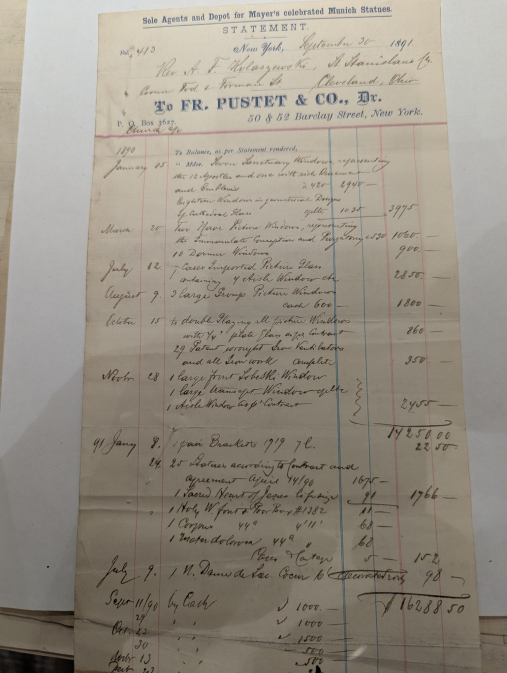 Sole Agents and Depot for Mayer's celebrated Munich Statues.
STATEMENT.
New York, September 30 1891
Rev. A. F. Kolaszewski, St Stanislaus
Corner Tod & Forman St Cleveland, Ohio
To FR. PUSTET & CO., Dr.
P. O. Box 3627. 50 & 52 Barclay Street, New York.
1890 To Balance, as per Statement rendered,
January 25 " Mdse. Seven Sanctuary Windows representing
the 12 Apostles and one with rich Ornament
and Emblems à 420 2940 —
Eighteen Windows in geometrical Designs
of Cathedral Glass 1035 3975
March 20 Two Floor Picture Windows, representing
the Immaculate Conception and Purgatory à 530 1060 —
10 Dormer Windows 900 —
July 12 7 Cases Imported Picture Glass
containing 4 Aisle Window 2850 —
August 9. 3 large Group Picture Windows
each 600 — 1800 —
October 15 to double Glazing all picture Windows
with 1/4" plate Glass as per Contract 860 —
29 Patent wrought Iron Ventilators
and all Iron work complete 350 —
Novbr 28 1 large front Sobeski Window
1 large transept Window
1 Aisle Window as pr Contract 2455 —
14250.00
91 Jany 8. 1 pair Brackets 1919 22 50
24 25 Statues according to Contract and
agreement April 14/90 1675 —
1 Sacred Heart of Jesus 91 1766 —
1 Holy W font & Poor Box #1382 11 —
1 Corpus 44" 4'11" 68 —
1 Mater dolorosa 44" " 68
Cases & Cartage 5 — 152
July 9. 1 N. Dame du Sac. Coeur 6' 98 —
$16288 50
Sept 11/90 by Cash √ 1000. —
29 " " √ 1000 —
Oct. 22 " " √ 1500 —
30 500 —
Novbr 13 " " √ 500